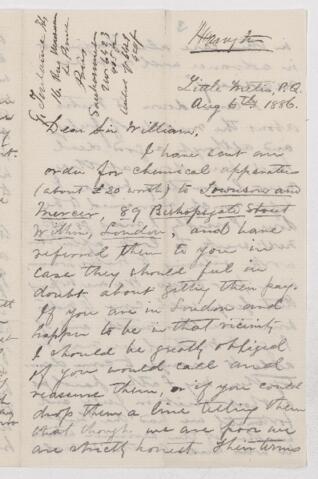 Harrington
Little Metis, P.Q.
Aug 6th 1886.
Dear Sir William,
I have sent an
order for chemical apparatus
(about £20 worth) to Townson and
Mercer, 89 Bishopsgate Street
Within, London, and have
referred them to you in
case they should feel in
doubt about getting their pay.
If you are in London and
happen to be in that vicinity
I should be greatly obliged
if you would call and
reassure them, or if you could
drop them a line telling them
that though we are poor we
are strictly honest. Their terms